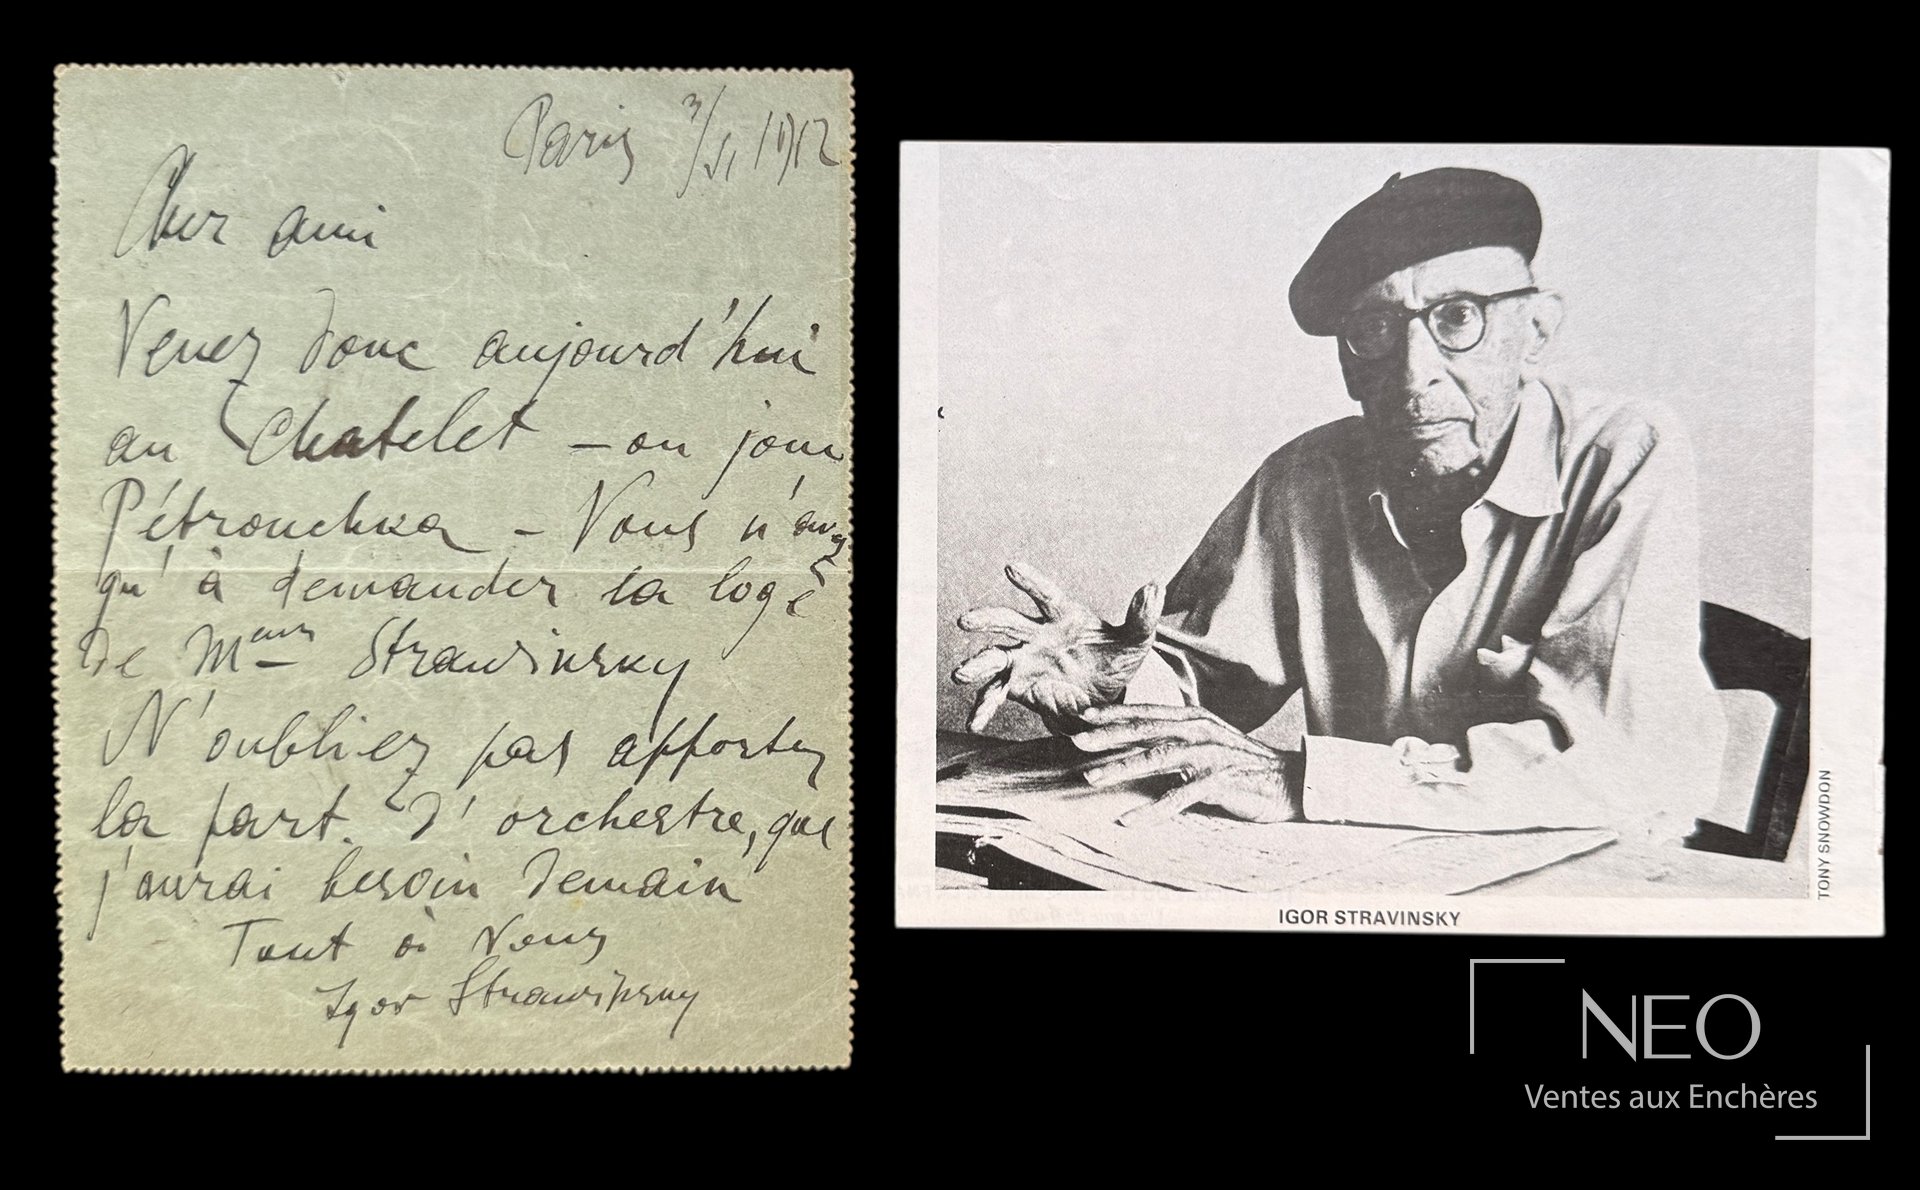 Paris 3/VI 1912
Cher ami
Venez donc aujourd'hui
au Chatelet – on joue
Pétrouchka – Vous n'avez
qu'à demander la loge
de M Strawinsky
N'oubliez pas apporter
la part. d'orchestre, que
j'aurai besoin demain
Tout à Vous
Igor Strawinsky
IGOR STRAVINSKY
TONY SNOWDON
NEO
Ventes aux Enchères